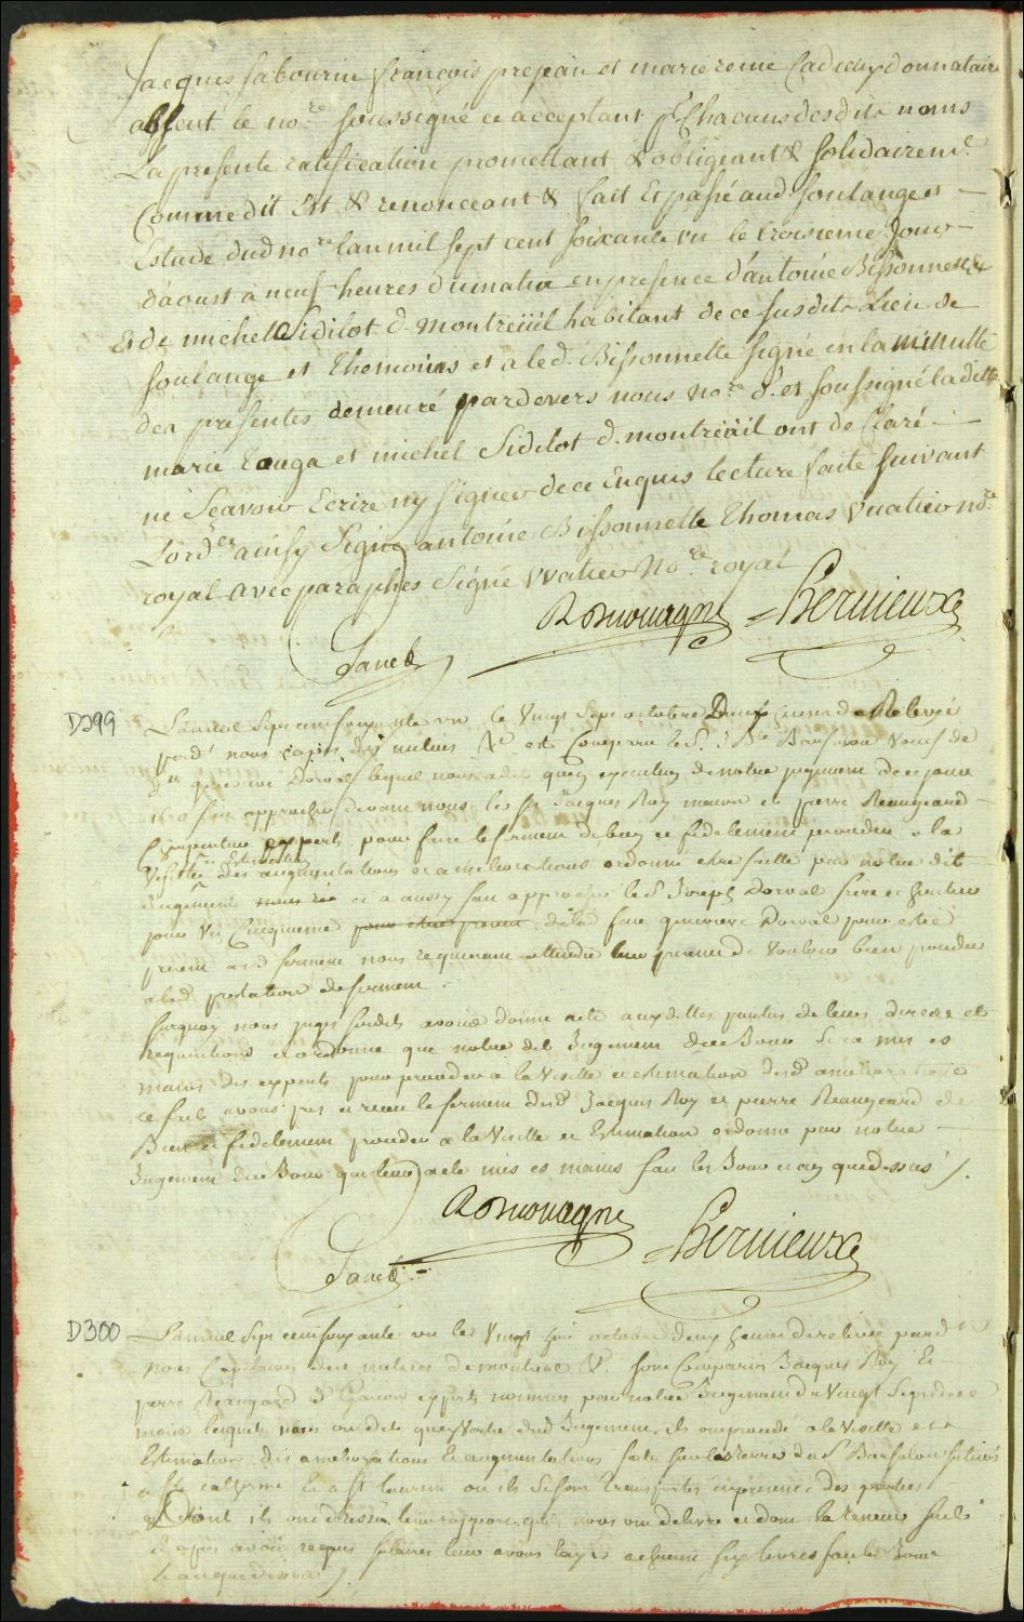 Jacques sabourin françois prejean et marie reine Cadieux donnataire
absent le no.re soussigné ce acceptant pr Chacuns desdits noms
La presente ratification promettant & obligeant & solidairemt.
Comme dit Est & renonceant & fait Et passé aud. soulanges —
Estude dud no.re lan mil sept cent soixante un le troisieme Jour —
d'aoust à neuf heures du matin en presence d'antoine Bissonnette
Et de michel Sidilot d. Montreüil habitant de ce susdits Lieu de
soulange et themoins et a led. Bissonnette signé en la minutte
des presentes demeuré pardevers nous no.re S. et soussigné laditte
marie et michel Sidilot d. montreüil ont de Claré —
ne Sçavoir Ecrire ny signer de ce Enquis lecture faite suivant
Lord.ce ainsy Signé antoine Bissonnette Thomas Vuatier no.re
royal avec paraphes Signé Vuatier No.re royal
RDecouagne Hervieux
Panet
D299
L'an mil Sept cens soixante un le Vingt Sept octobre Deux heures de Relevée
pard. nous capns. des milices &c. est Comparu le S. J. Bte. Veuf de
Dorval lequel nous a dit quen execution de notre jugement de ce jour
il a fait approcher devant nous les Srs. Jacques Roy masson et pierre
Charpentier experts pour faire le serment de bien et fidelement proceder a la
Visitte et Estimation des augmentations et ameliorations ordonné etre faitte par notre dit
Jugement et a aussy fait approcher le S. Joseph Dorval frere et heritier
pour Un Cinquieme de lad. feue genevieve Dorval pour etre
present aud serment nous requerant attendu leur presence de Vouloir bien proceder
a lad. prestation de serment.
surquoy nous juges susdits avons donné acte aux dittes parties de leurs dires et
requisitions et ordonné que notre dit Jugement de ce Jour Sera mis es
mains des experts pour proceder a la Visitte et estimation desd. ameliorations
ce fait avons pris et recu le serment desd. Jacques Roy et pierre de
Bien et fidelement proceder a la Visitte et Estimation ordonné par notre —
Jugement de ce Jour qui leur a ete mis es mains fait les Jour et an que dessus
RDecouagne Hervieux
Panet
D300
L'an mil Sept cens soixante un le Vingt huit octobre deux heures de relevée pard.
nous Capitaines des milices de montreal &c. sont Comparus Jacques Roy Et
pierre experts nommés par notre Jugement du Vingt Sept de ce
mois lesquels nous ont dit quen Vertu dud Jugement ils ont procedé a la Visitte et
Estimation des ameliorations Et augmentations faites sur les terres du S. situés
a Ste catherine Et a St laurent ou ils se sont transportés en presence des parties
Dont ils ont dressé leur rapport quils nous ont delivré et dont la teneur suit
apres avoir requis salaires leur avons taxés a chacun six livres fait les Jour
Et an que dessus